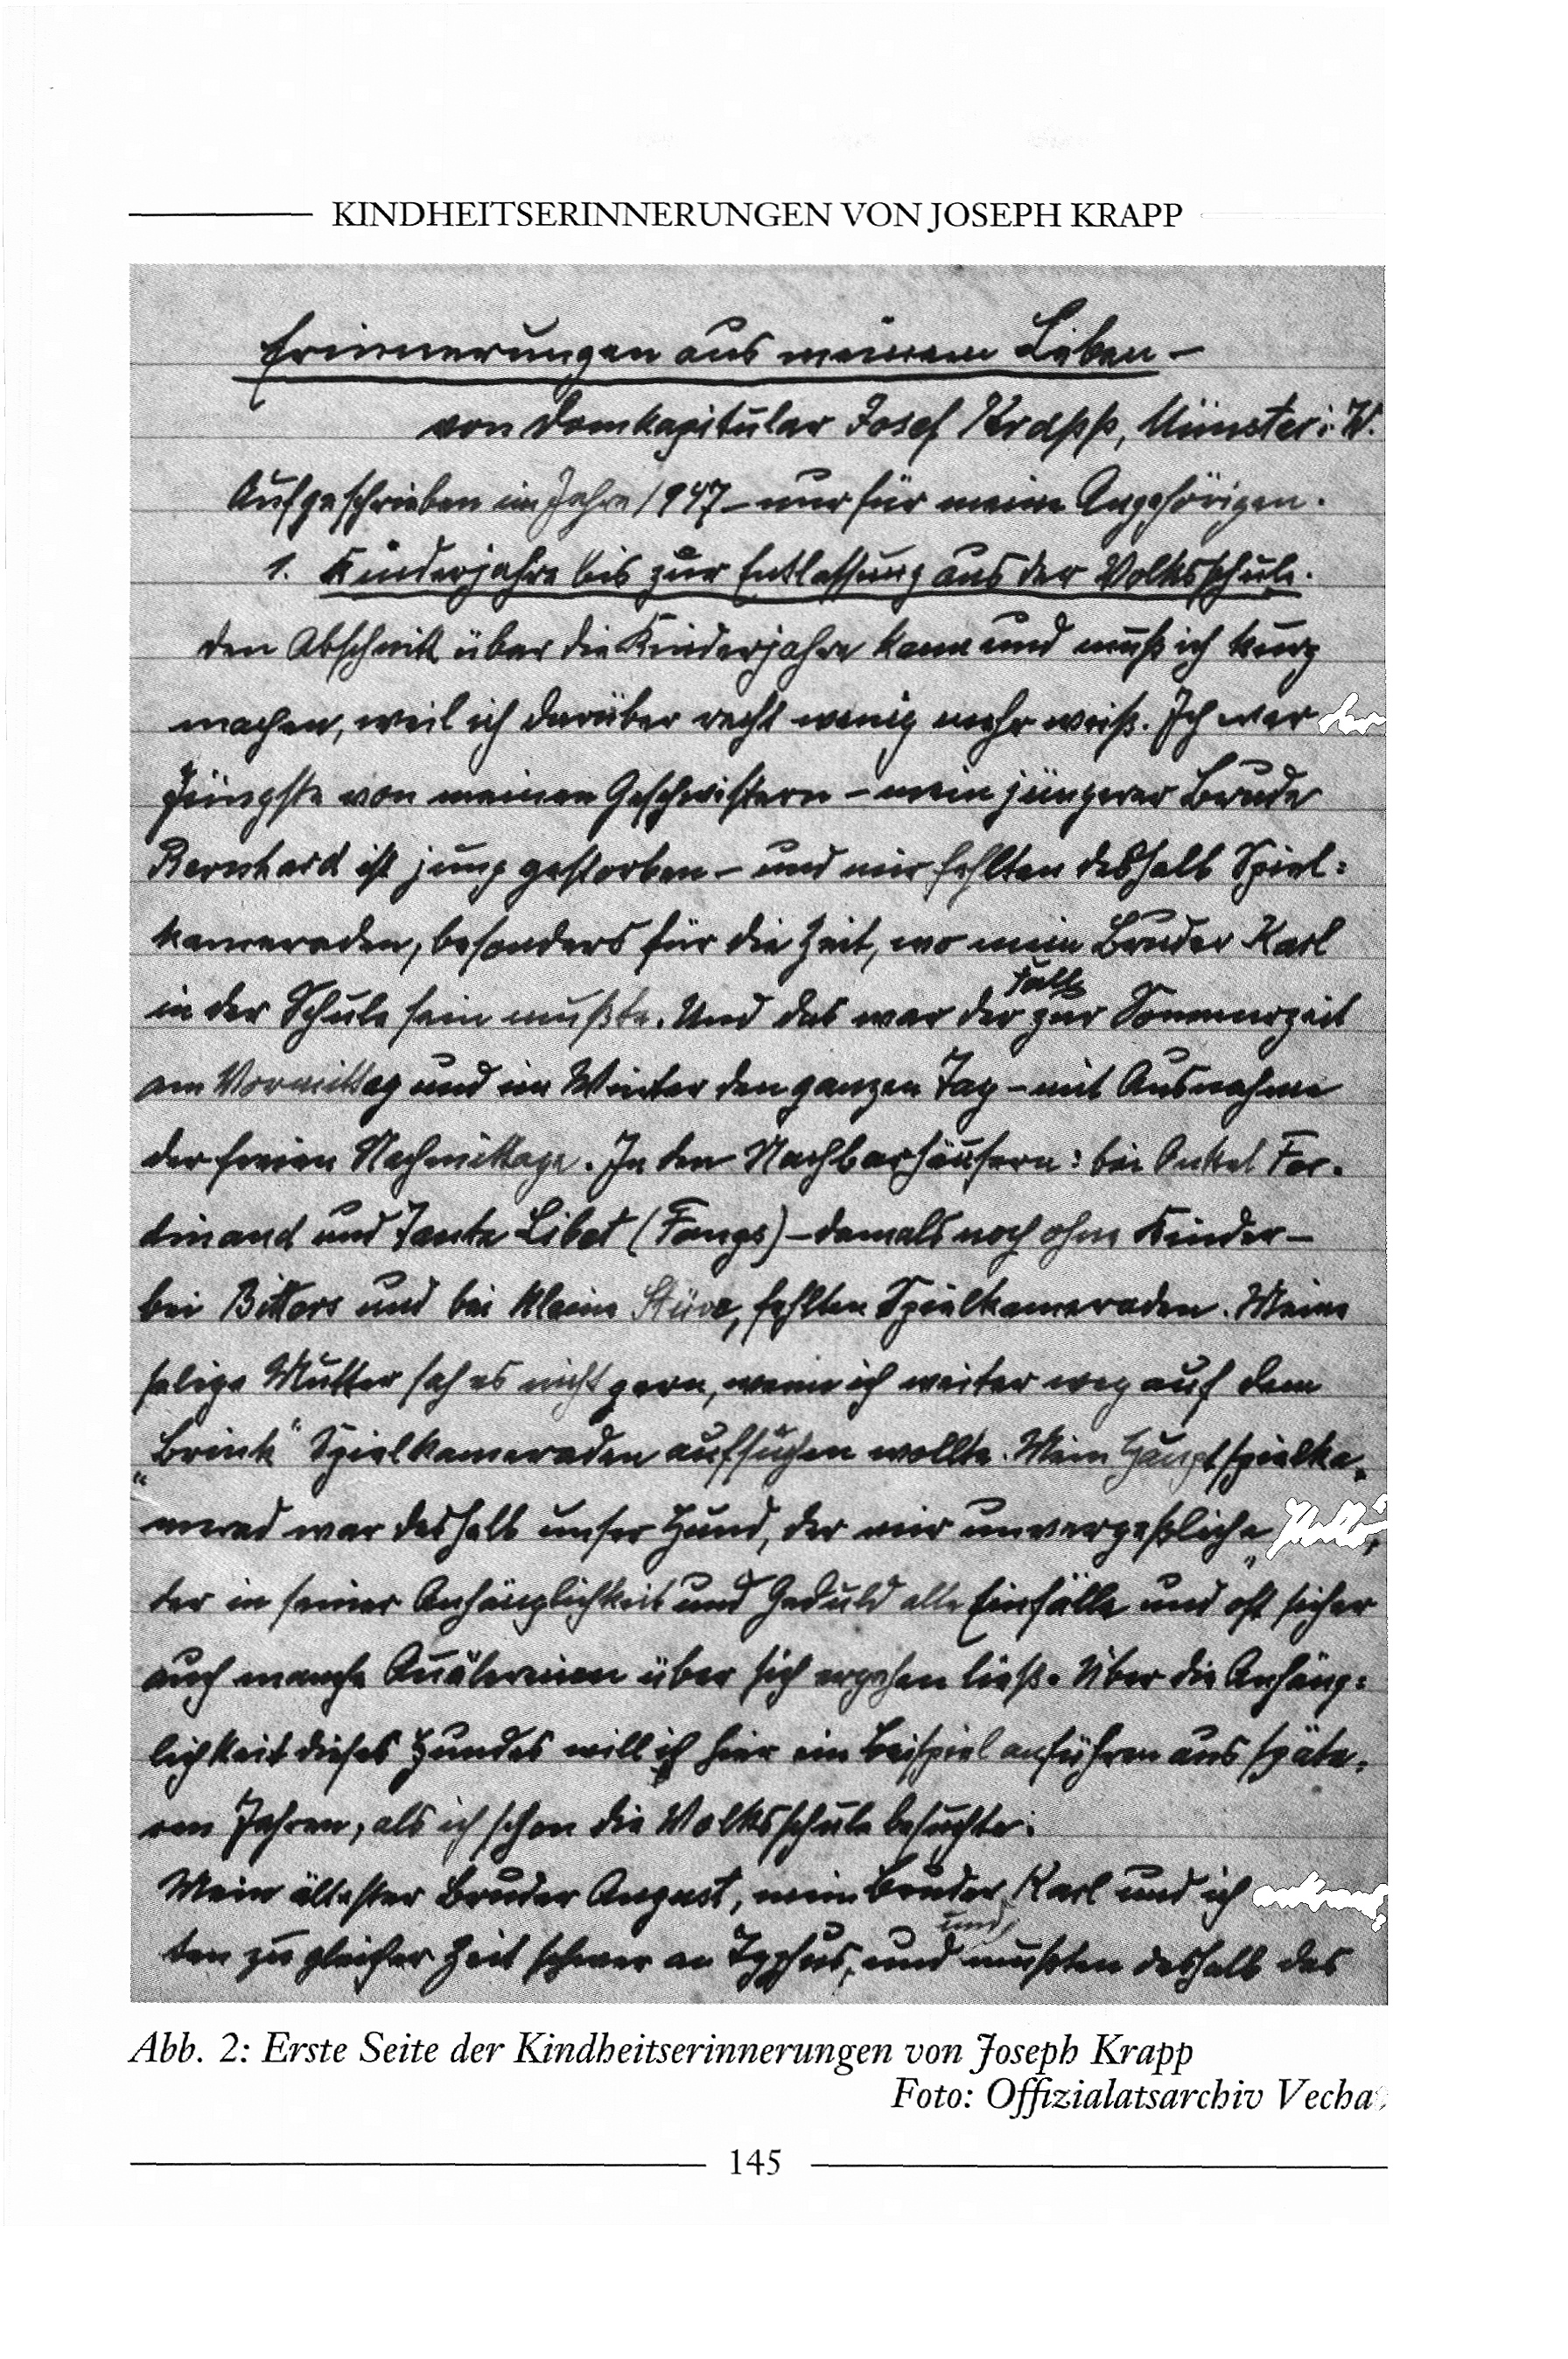 KINDHEITSERINNERUNGEN VON JOSEPH KRAPP
Erinnerungen aus meinem Leben –
von Domkapitular Josef Krapp, Münster i. W.
Aufgeschrieben im Jahre 1947 – nur für meine Angehörigen.
1. Kinderjahre bis zur Entlassung aus der Volksschule.
Den Abschnitt über die Kinderjahre kann und muß ich kurz
machen, weil ich darüber recht wenig mehr weiß. Ich war der
Jüngste von meinen Geschwistern – mein jüngerer Bruder
Bernhard ist jung gestorben – und mir fehlten deshalb Spiel=
kameraden, besonders für die Zeit, wo mein Bruder Karl
in der Schule sein mußte. Und das war der Fall zur Sommerzeit
am Vormittag und im Winter den ganzen Tag – mit Ausnahme
der freien Nachmittage. In den Nachbarhäusern: bei Onkel Fer=
dinand und Tante Libet (Fangs) – damals noch ohne Kinder –
bei Bitters und bei Kleine Stüve, fehlten Spielkameraden. Meine
selige Mutter sah es nicht gern, wenn ich weiter weg auf dem
„Brink“ Spielkameraden aufsuchen wollte. Mein Hauptspielka=
merad war deshalb unser Hund, der mir unvergeßliche
der in seiner Anhänglichkeit und Geduld alle Einfälle und oft sicher
auch manche Quälereien über sich ergehen ließ. Über die Anhäng=
lichkeit dieses Hundes will ich hier ein Beispiel anführen aus späte=
ren Jahren, als ich schon die Volksschule besuchte:
Mein ältester Bruder August, mein Bruder Karl und ich
ten zu gleicher Zeit schwer an Typhus, und mußten deshalb das
Abb. 2: Erste Seite der Kindheitserinnerungen von Joseph Krapp
Foto: Offizialatsarchiv Vechta
145